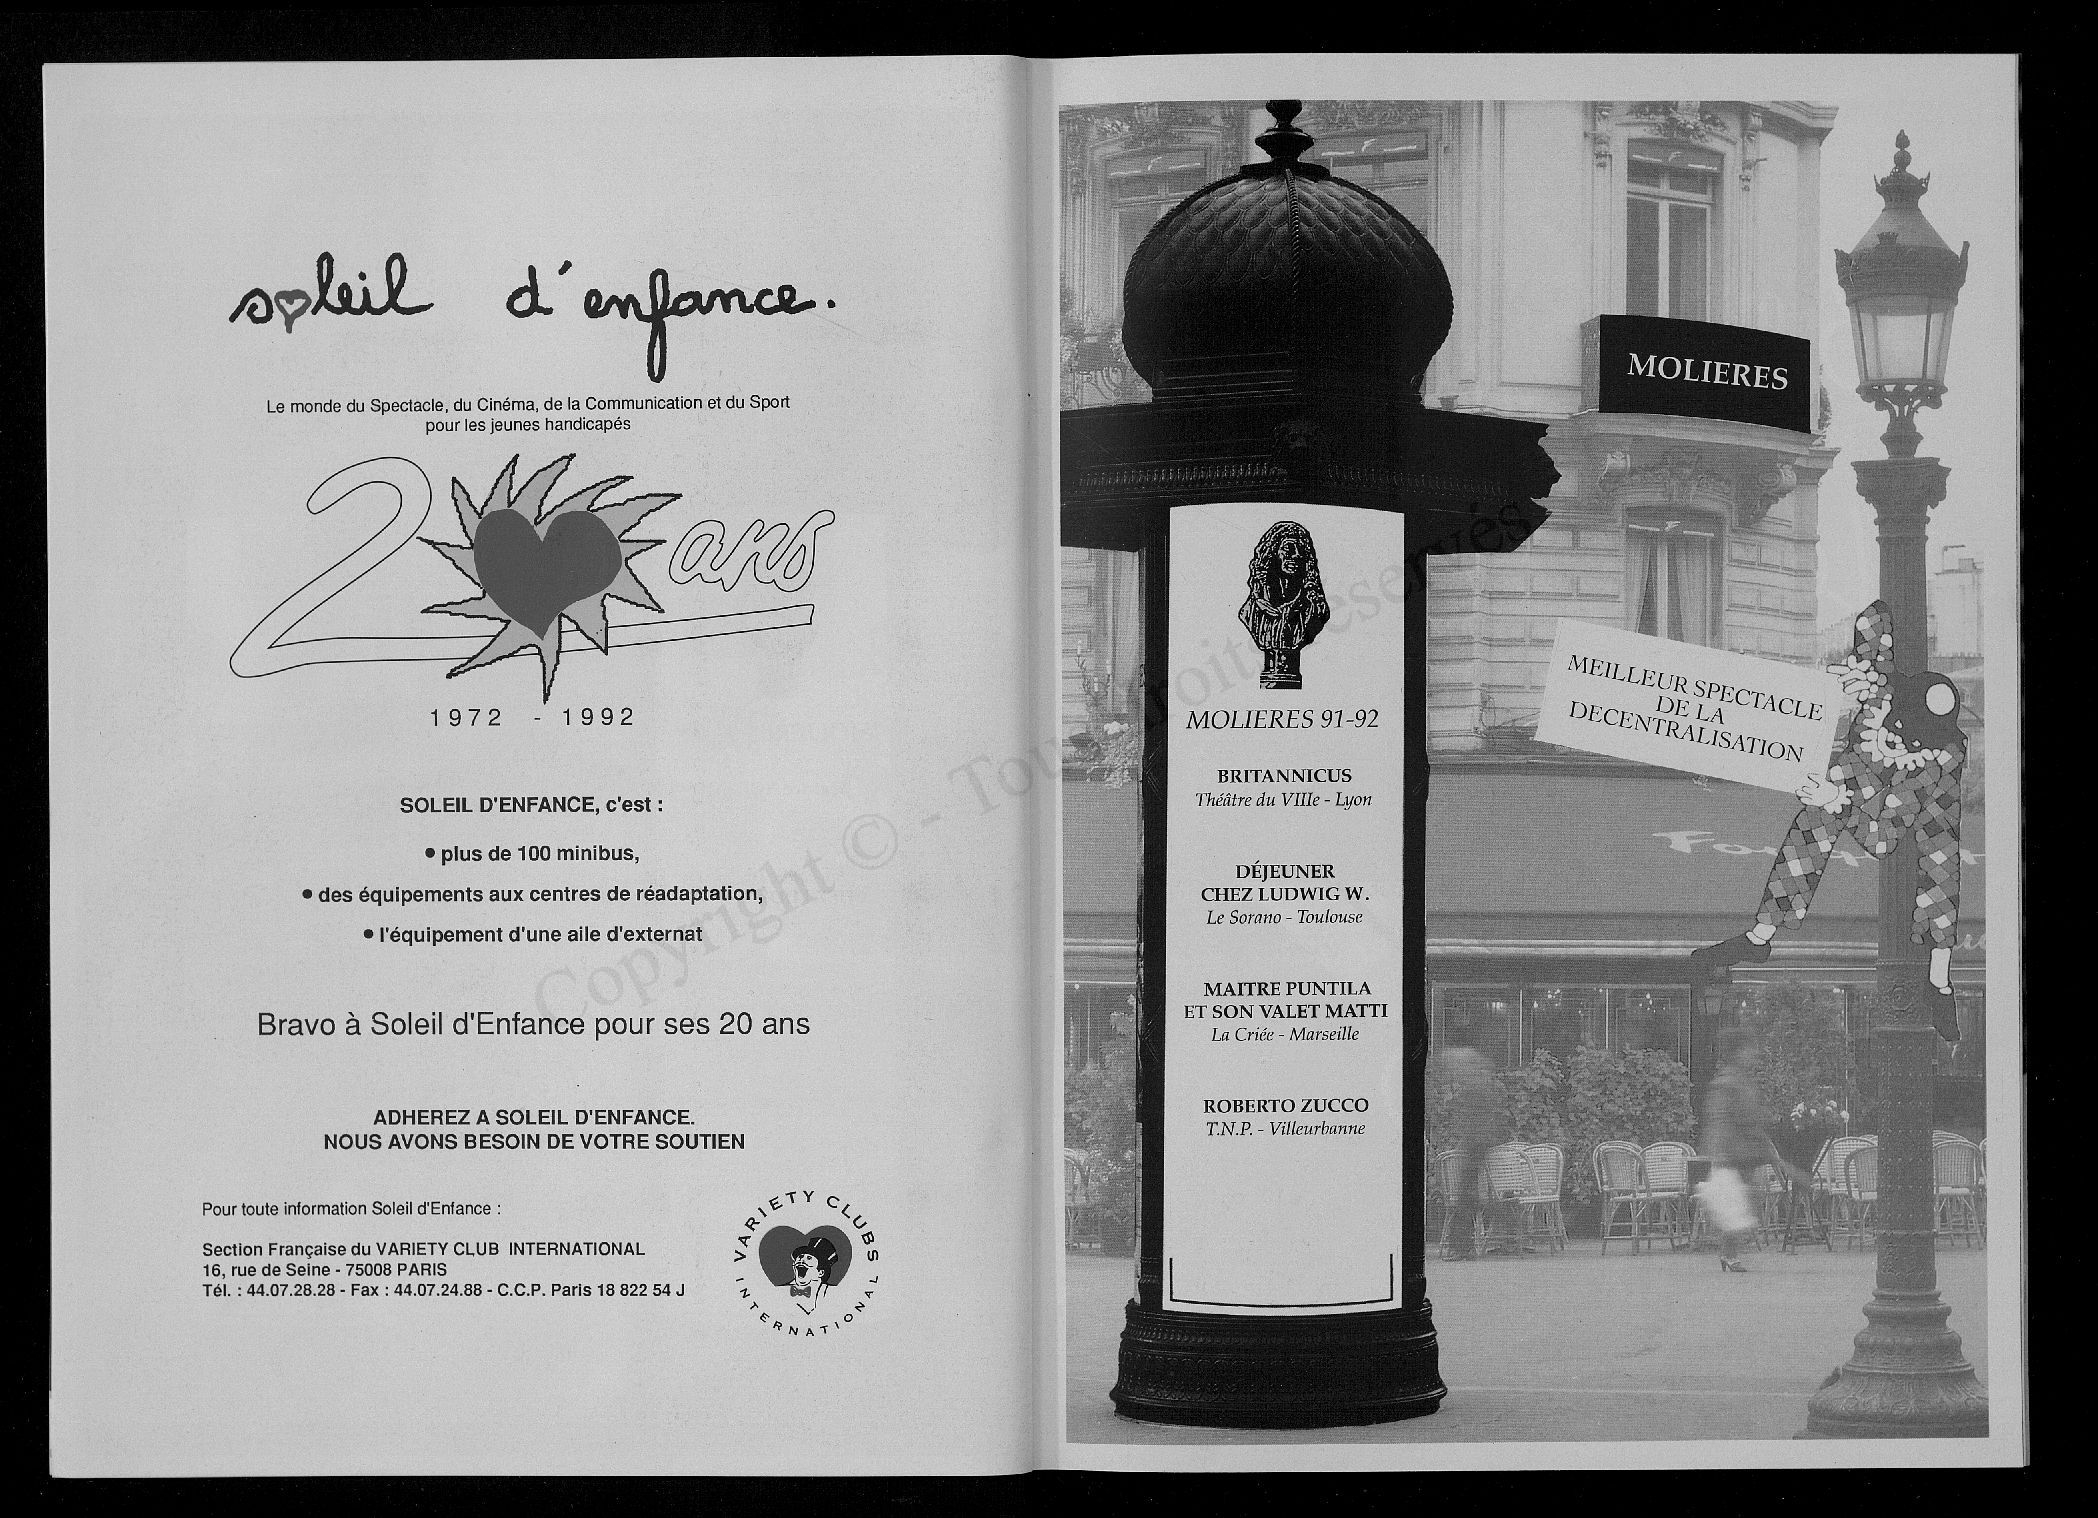 soleil d'enfance.
Le monde du Spectacle, du Cinéma, de la Communication et du Sport
pour les jeunes handicapés
20 ans
1972 - 1992
SOLEIL D'ENFANCE, c'est :
• plus de 100 minibus,
• des équipements aux centres de réadaptation,
• l'équipement d'une aile d'externat
Bravo à Soleil d'Enfance pour ses 20 ans
ADHEREZ A SOLEIL D'ENFANCE.
NOUS AVONS BESOIN DE VOTRE SOUTIEN
Pour toute information Soleil d'Enfance :
Section Française du VARIETY CLUB INTERNATIONAL
16, rue de Seine - 75008 PARIS
Tél. : 44.07.28.28 - Fax : 44.07.24.88 - C.C.P. Paris 18 822 54 J
VARIETY CLUBS INTERNATIONAL
MOLIERES
MEILLEUR SPECTACLE
DE LA
DECENTRALISATION
MOLIERES 91-92
BRITANNICUS
Théâtre du VIIIe - Lyon
DÉJEUNER
CHEZ LUDWIG W.
Le Sorano - Toulouse
MAITRE PUNTILA
ET SON VALET MATTI
La Criée - Marseille
ROBERTO ZUCCO
T.N.P. - Villeurbanne
Copyright © - Tous droits réservés